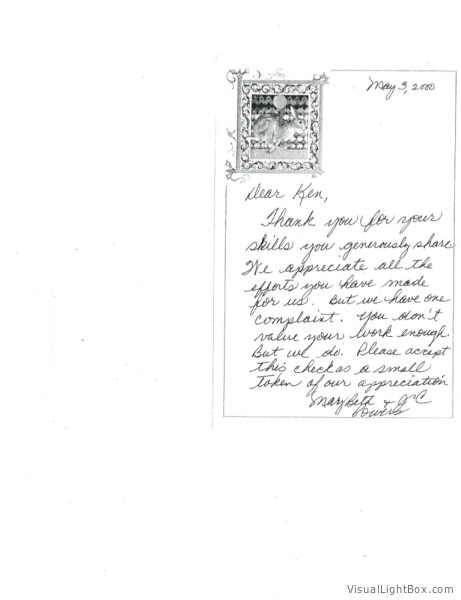 May 3, 2000
Dear Ken,
Thank you for your
skills you generously share.
We appreciate all the
efforts you have made
for us. But we have one
complaint. You don't
value your work enough.
But we do. Please accept
this check as a small
token of our appreciation
MaryBeth & JC
Powers
VisualLightBox.com